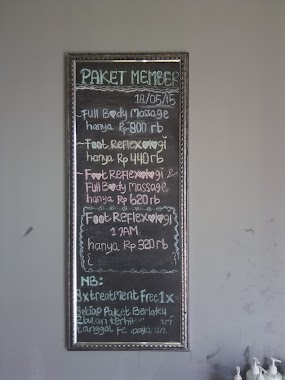 PAKET MEMBER
18/05/15
Full Body Massage
hanya Rp 800 rb
Foot Reflexologi
hanya Rp 440 rb
Foot Reflexologi &
Full Body Massage
hanya Rp 620 rb
Foot Reflexologi
1 JAM
hanya Rp 320 rb
NB:
8x treatment Free 1x
Setiap Paket Berlaku
2 bulan
tanggal